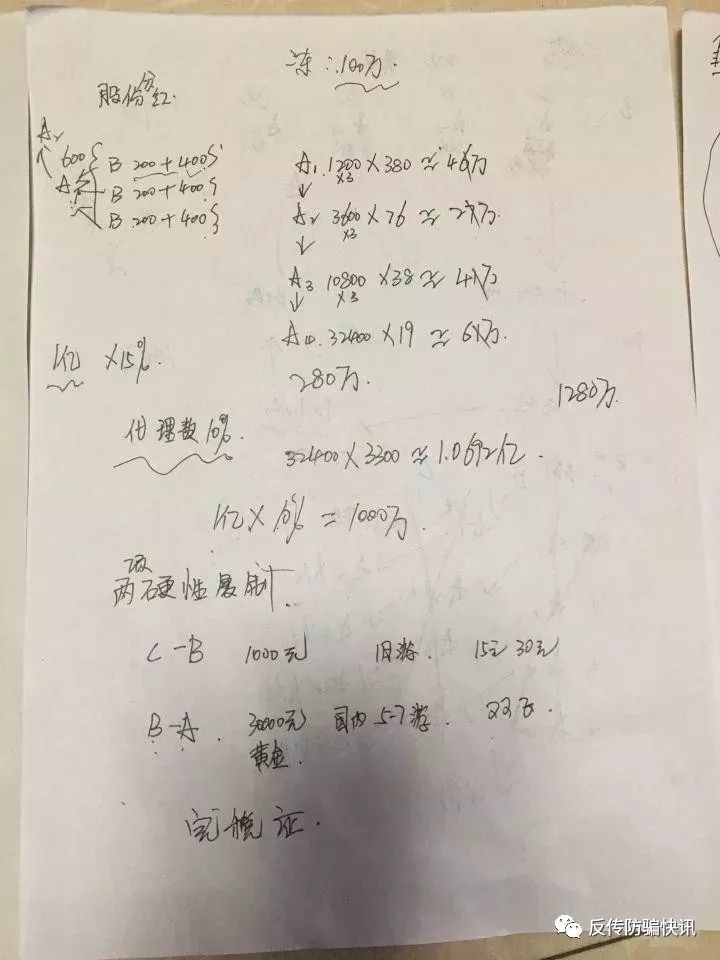 100万.
股份分红.
A2
600 B 200+400
A B 200+400
B 200+400
A1 1200×380≈46万
×3
A2 3600×76≈27万
×3
A3 10800×38≈41万
×3
32400×19≈61万.
280万.
1280万.
1亿 ×15%.
代理数10%.
32400×3300≈1.0692亿.
1亿×10%=1000万.
两硬性复制.
C-B 1000元 旧游. 15元 30元
B-A. 30000元 国内5-7游. 双飞.
黄金.
完税证.
反传防骗快讯